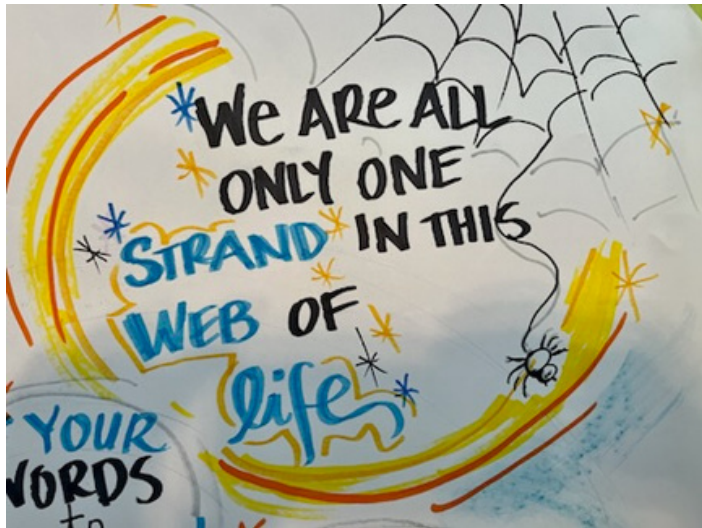 We ARe ALL
ONLY ONE
STRAND IN THIS
WEB OF
life
YOUR
WORDS
to